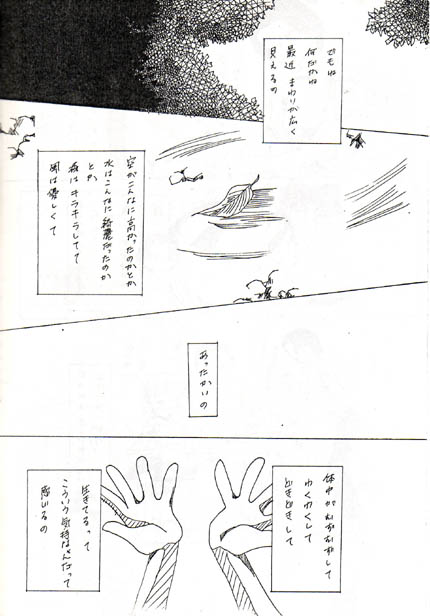 でもね
何だかね
最近 まわりが広く
見えるの
空がこんなに高かったのかとか
水はこんなに綺麗だったのか
とか
森はキラキラしてて
風は優しくて
あったかいの
体中がむずむずして
わくわくして
どきどきして
生きてるって
こういう気持なんだって
感じるの